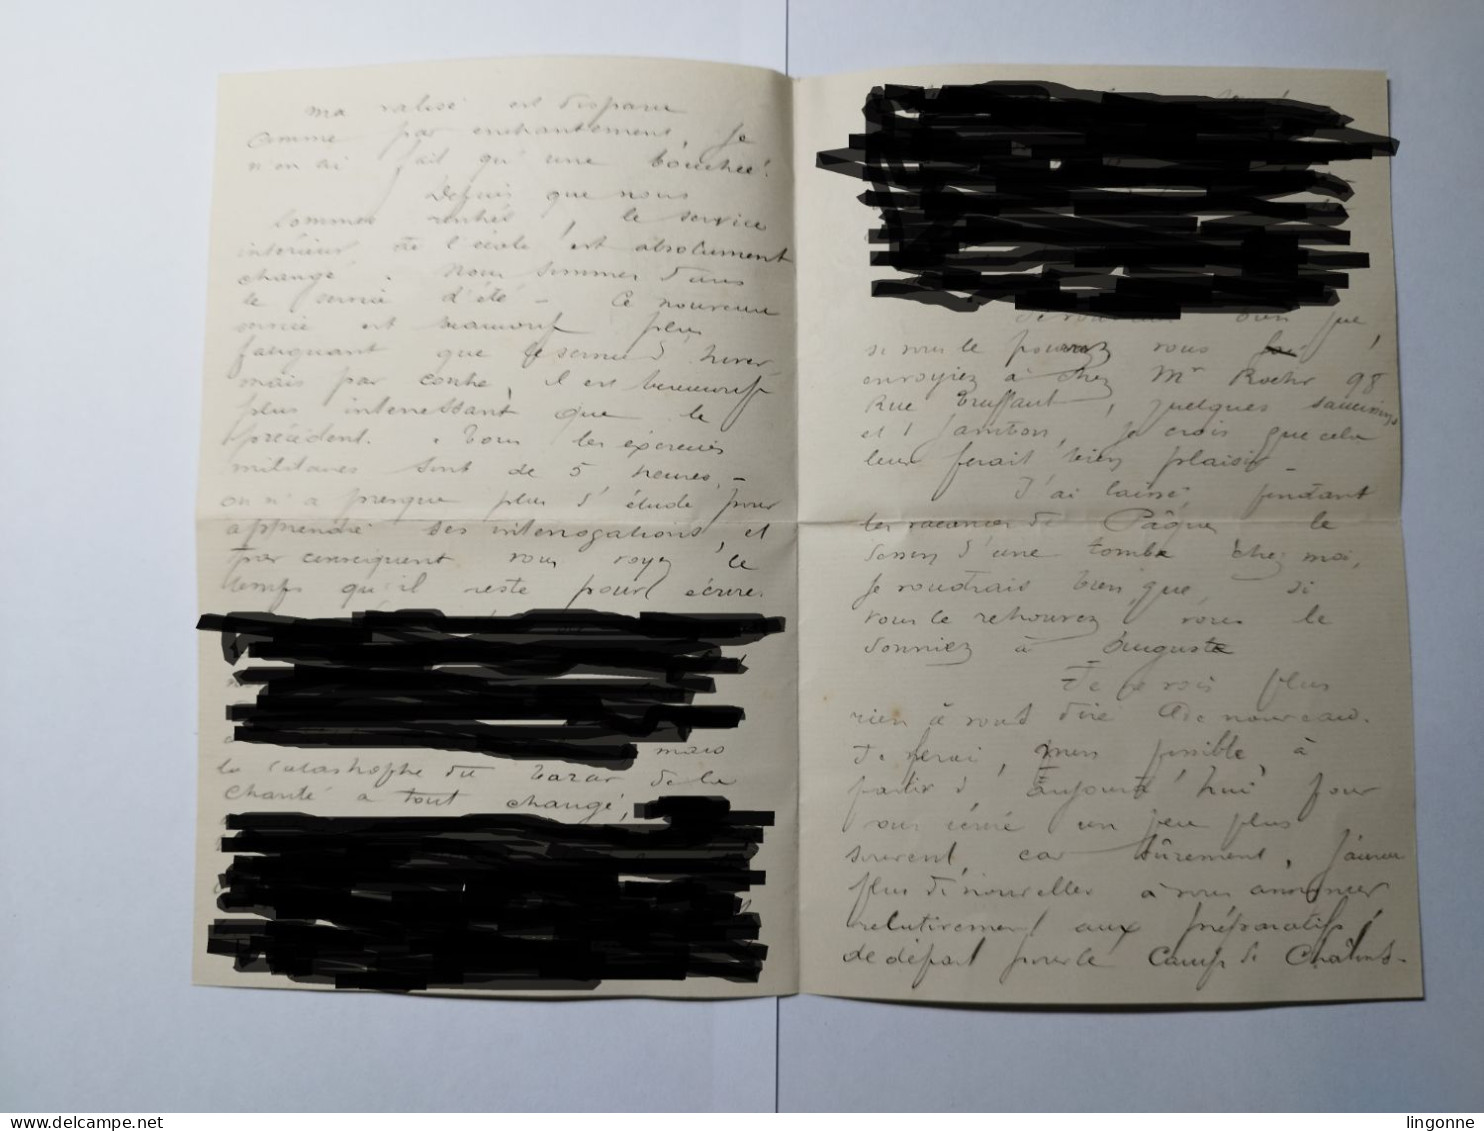 ma valise est disparu
comme par enchantement, je
n'en ai fait qu'une bouchée!
Depuis que nous
sommes rentrés, le service
intérieur de l'école est absolument
changé. Nous sommes dans
le service d'été - Ce nouveau
service est beaucoup plus
fatiguant que le service d'hiver
mais par contre, il est beaucoup
plus interressant que le
précédent. Tous les éxercices
militaires sont de 5 heures, -
on n'a presque plus d'étude pour
apprendre ses interrogations, et
par conséquent vous voyez le
temps qu'il reste pour écrire.
mais
la catastrophe du bazar de la
charité a tout changé,
Je voudrais bien que,
si vous le pouvez vous
envoyiez à chez Mr Rocher 98
Rue Truffaut, quelques saucissons
et 1 jambon, je crois que cela
leur ferait bien plaisir -
J'ai laissé, pendant
les vacances de Pâques le
dessin d'une tombe chez moi,
je voudrais bien que, si
vous le retrouvez, vous le
donniez à Auguste
Je ne vois plus
rien à vous dire de nouveau.
Je ferai, mon possible, à
partir d'aujourd'hui pour
vous écrire un peu plus
souvent, car sûrement, j'aurai
plus de nouvelles à vous annoncer
relativement aux préparatifs
de départ pour le Camp de Châlons -
lingonne